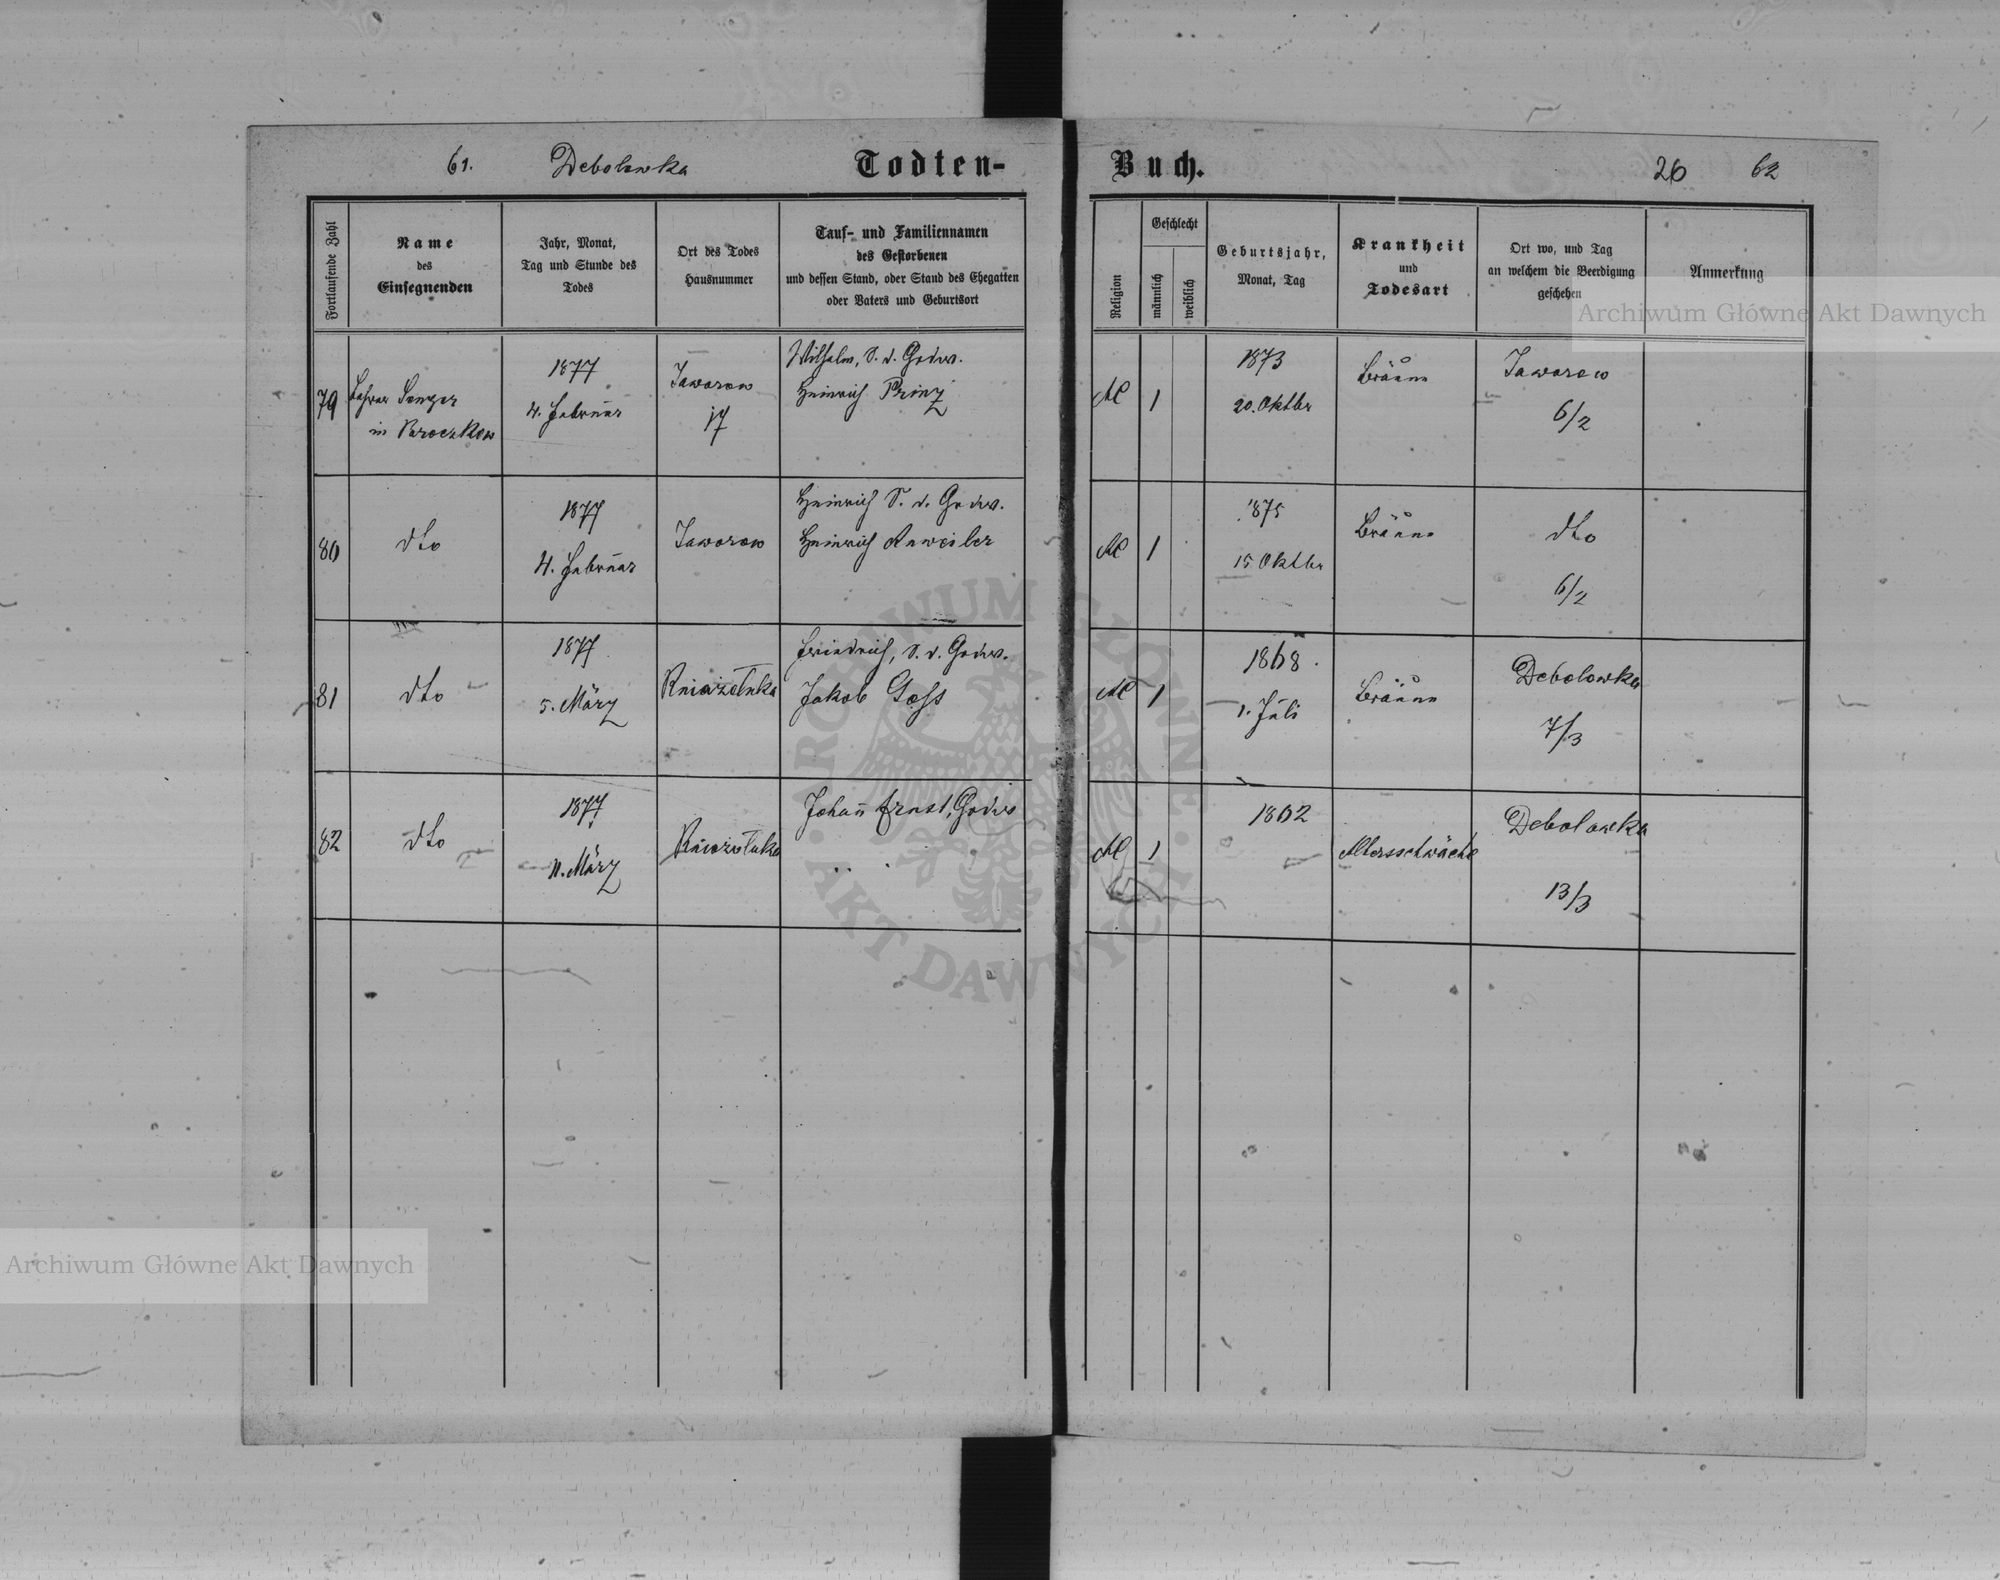 61. Debolowka Todten-
Buch. 26 62
Fortlaufende Zahl
Name
des
Einsegnenden
Jahr, Monat,
Tag und Stunde des
Todes
Ort des Todes
Hausnummer
Tauf- und Familiennamen
des Gestorbenen
und dessen Stand, oder Stand des Ehegatten
oder Vaters und Geburtsort
Religion
Geschlecht
männlich
weiblich
Geburtsjahr,
Monat, Tag
Krankheit
und
Todesart
Ort wo, und Tag
an welchem die Beerdigung
geschehen
Anmerkung
79
Lehrer Senger
in Broczkow
1877
4. Februar
Jaworow
17
Wilhelm, S. d. Grdw.
Heinrich Prinz
1
1873
20. Oktbr
Bräune
Jaworow
6/2
80
dto
1877
4. Februar
Jaworow
Heinrich S. d. Grdw.
Heinrich Anweiler
1
1875
15 Oktbr
Bräune
dto
6/2
81
dto
1877
5. März
Kniazoluka
Friedrich, S. d. Grdw.
Jakob
1
1868.
1. Juli
Bräune
Debolowka
7/3
82
dto
1877
11. März
Kniazoluka
Johann Ernst, Grdw
1
1802
Altersschwäche
Debolowka
13/3
Archiwum Główne Akt Dawnych
Archiwum Główne Akt Dawnych
ARCHIWUM GŁÓWNE · AKT DAWNYCH ·